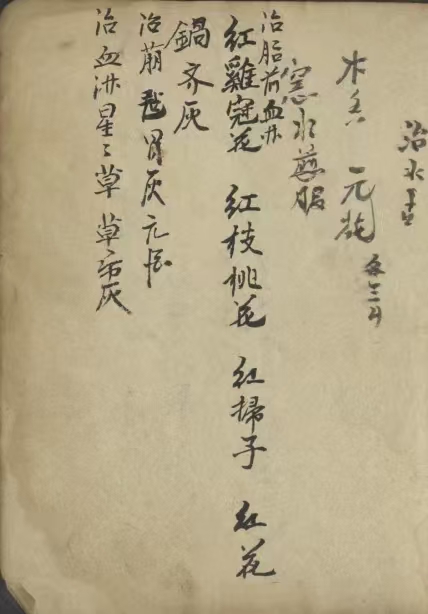 治水
木香 元花 各三
水煎服
治胎前血淋
紅雞冠花 紅枝桃花 紅掃子 紅花
鍋齐灰
治崩 胃灰元酒
治血淋星〻草 草灰